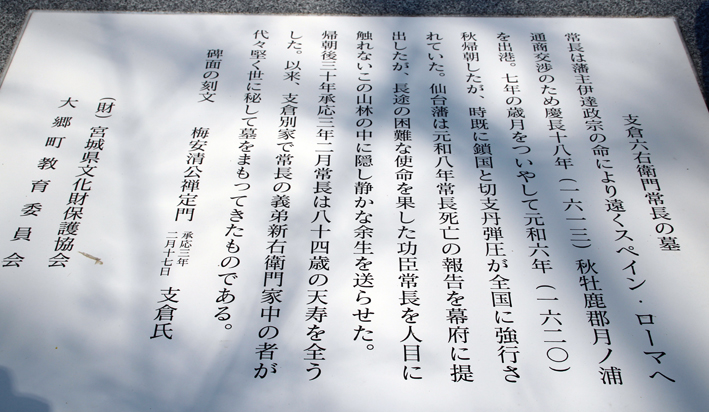 支倉六右衛門常長の墓
常長は藩主伊達政宗の命により遠くスペイン・ローマへ
通商交渉のため慶長十八年（一六一三）秋牡鹿郡月ノ浦
を出港。七年の歳月をついやして元和六年（一六二〇）
秋帰朝したが、時既に鎖国と切支丹弾圧が全国に強行さ
れていた。仙台藩は元和八年常長死亡の報告を幕府に提
出したが、長途の困難な使命を果した功臣常長を人目に
触れないこの山林の中に隠し静かな余生を送らせた。
帰朝後三十年承応三年二月常長は八十四歳の天寿を全う
した。以来、支倉別家で常長の義弟新右衛門家中の者が
代々堅く世に秘して墓をまもってきたものである。
碑面の刻文　梅安清公禅定門　承応三年二月十七日　支倉氏
（財）宮城県文化財保護協会
大郷町教育委員会